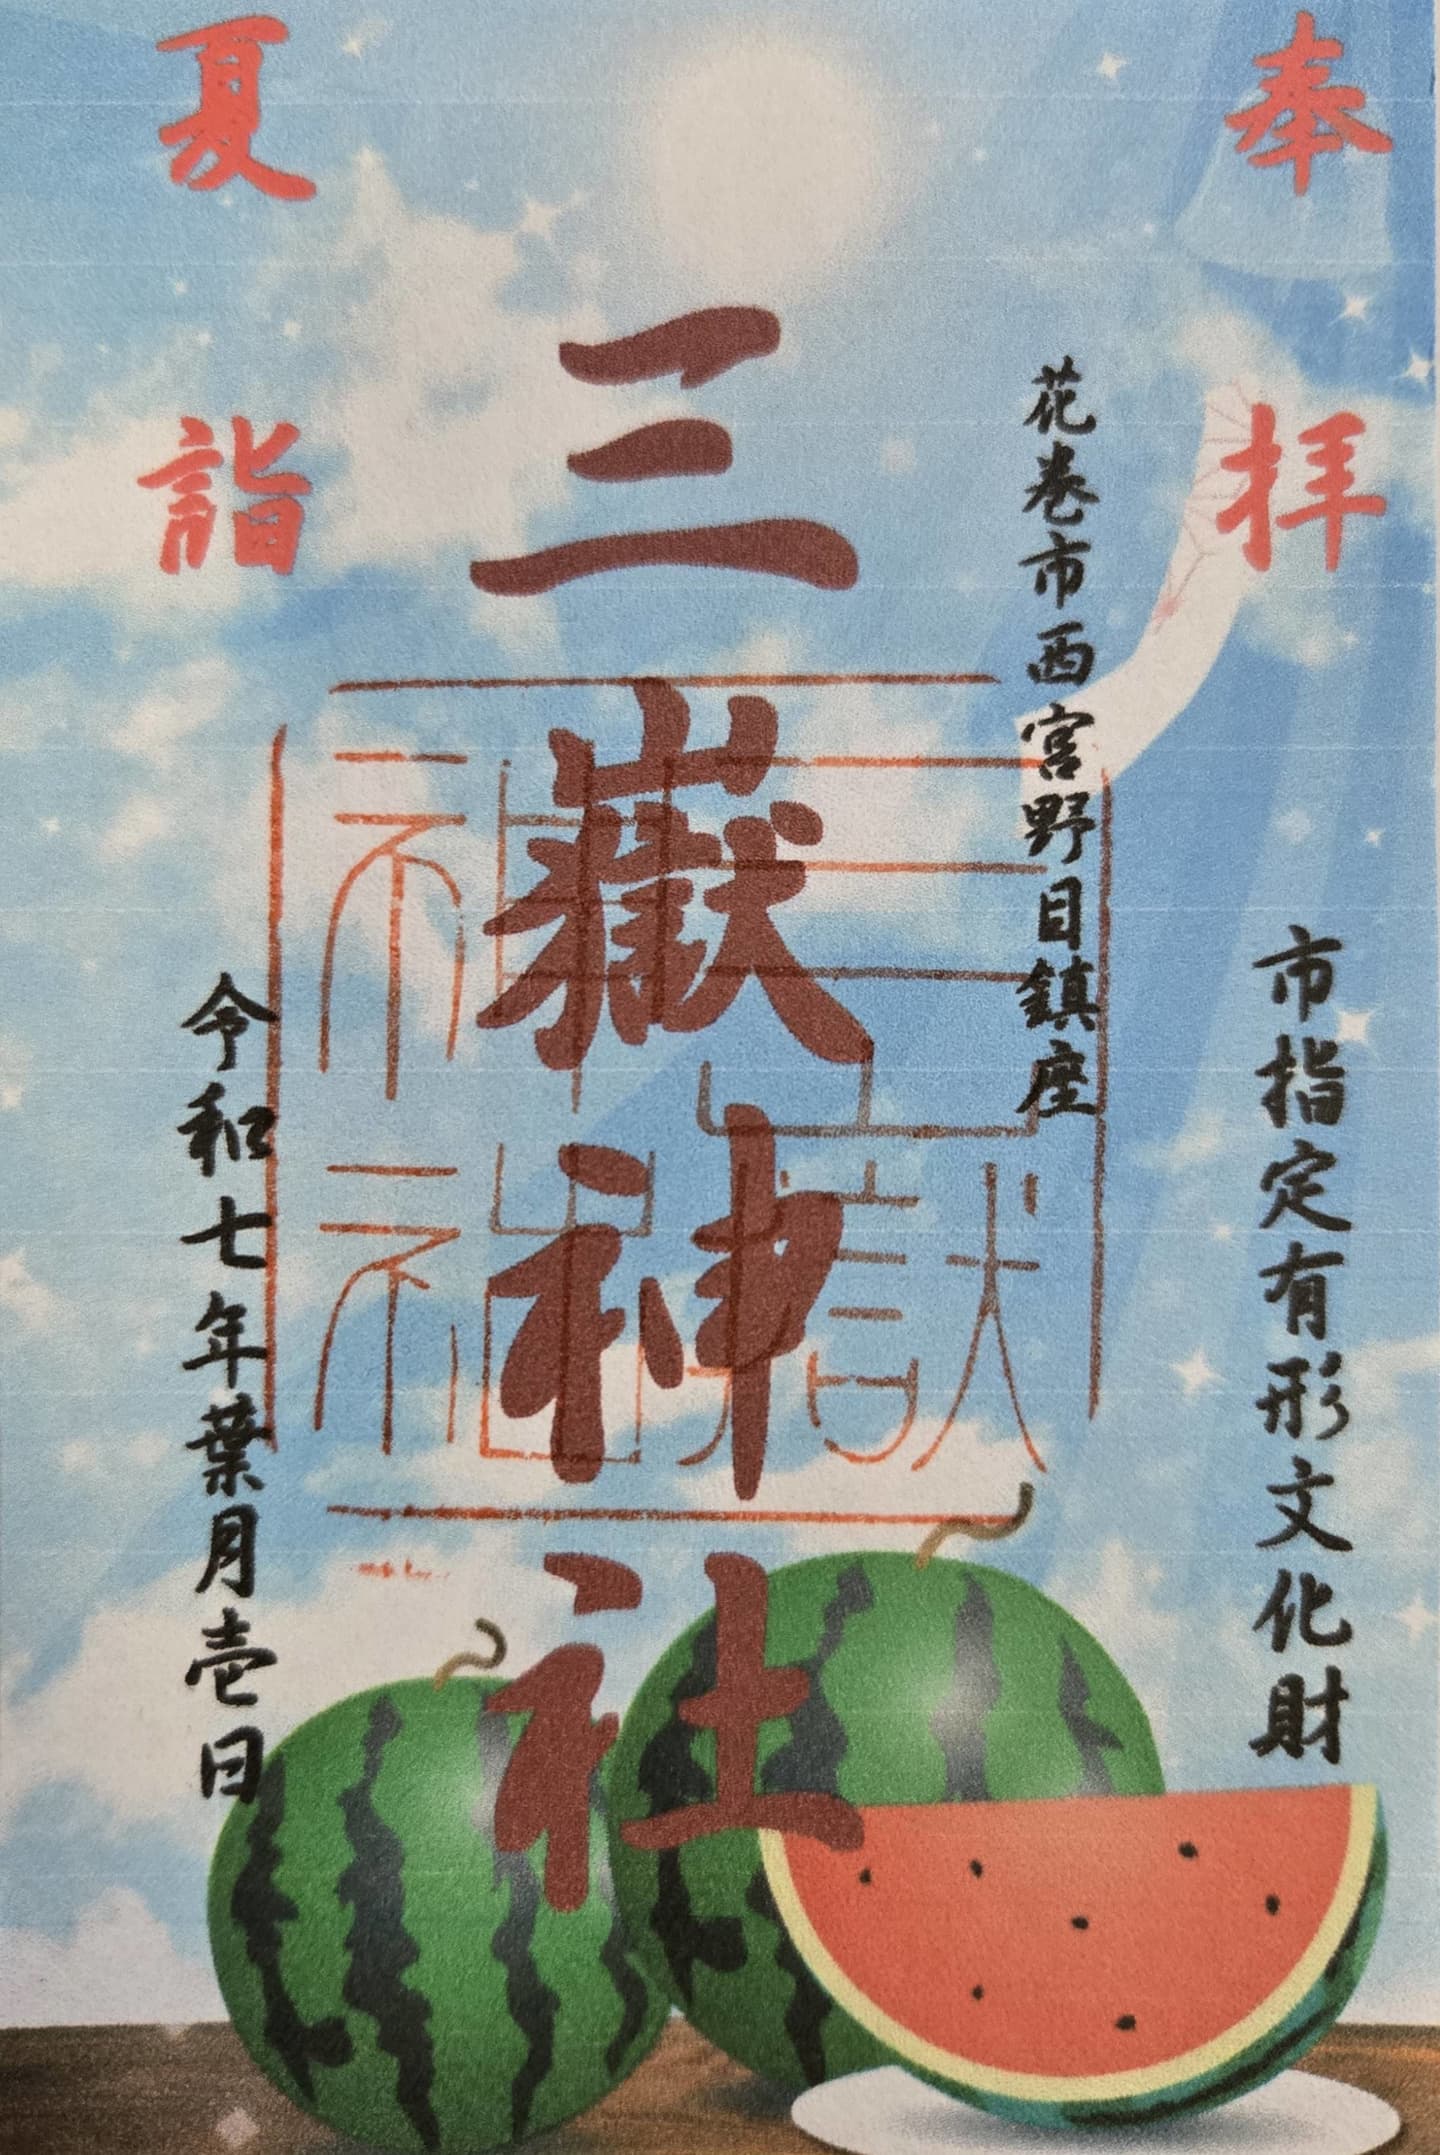 奉拝
市指定有形文化財
花巻市西宮野目鎮座
三嶽神社
三嶽神社
夏詣
令和七年葉月壱日